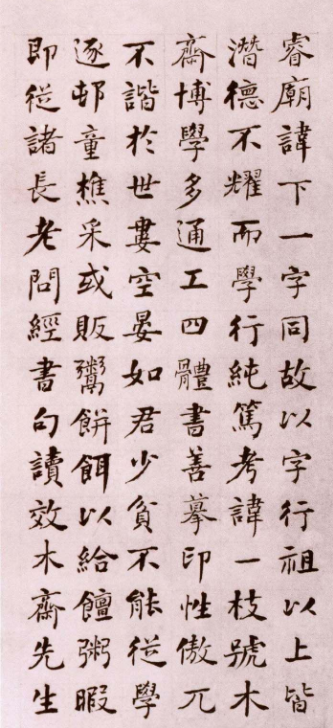 睿廟諱下一字同故以字行祖以上皆
潛德不耀而學行純篤考諱一枝號木
齋博學多通工四體書善摹印性傲兀
不諧於世婁空晏如君少貧不能從學
逐邨童樵采或販鬻餅餌以給饘粥暇
即從諸長老問經書句讀效木齋先生